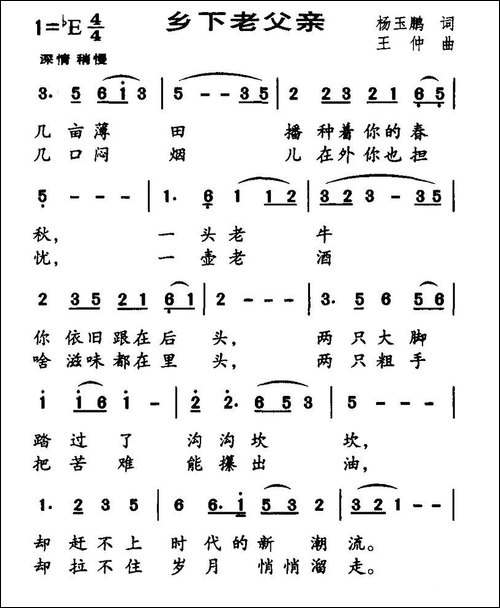 乡下老父亲
1=♭E 4/4
杨玉鹏 词
王 仲 曲
深情 稍慢
3· 5 6 i 3 | 5 - - 3 5 | 2 2 3 2 1 6 5 |
几 亩 薄 田 播 种 着 你 的 春
几 口 闷 烟 儿 在 外 你 也 担
5 - - - | 1· 6 1 1 2 | 3 2 3 - 3 5 |
秋, 一 头 老 牛
忧, 一 壶 老 酒
2 3 5 2 1 6 1 | 2 - - - | 3· 5 6 5 6 |
你 依 旧 跟 在 后 头, 两 只 大 脚
啥 滋 味 都 在 里 头, 两 只 粗 手
i i 6 i - | 2 2· 6 5 3 | 5 - - - |
踏 过 了 沟 沟 坎 坎,
把 苦 难 能 攥 出 油,
1· 2 3 5 | 6 6· i 5 3 | 3 2 1 - - |
却 赶 不 上 时 代 的 新 潮 流。
却 拉 不 住 岁 月 悄 悄 溜 走。